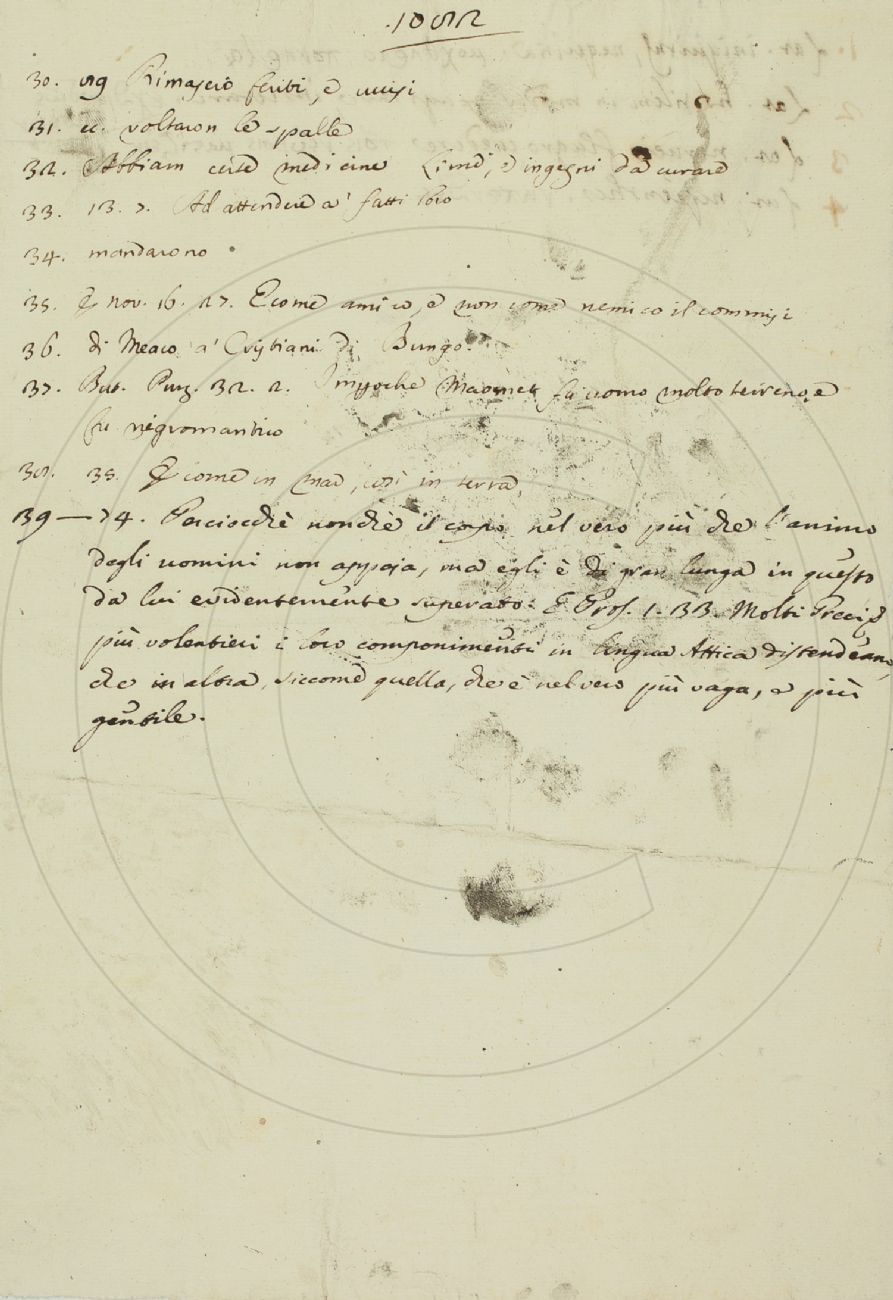 1082
30. 89 Rimasero feriti, e uccisi
31. ec. voltaron le spalle
32. Abbiam certe medicine e ingegni da curare
33. 13. 7. Ad attendere a' fatti loro
34. mandarono
35. E nov. 16. 27. E come amico, e non come nemico il commisi
36. di Meaco a' Cristiani di Bungo.
37. But. Purg. 32. 2. Impoche Maomet fu uomo molto terreno, e
fu nigromantico
38. 35. E come in mar, così in terra,
39 — 74. Perciocchè nonchè il corpo nel vero più che l'animo
degli uomini non appaja, ma egli è di gran lunga in questo
da lui evidentemente superato. E Pros. 1. 33. Molti Greci
più volentieri i loro componimenti in lingua Attica distendeano,
che in altra, siccome quella, che è nel vero più vaga, e più
gentile.